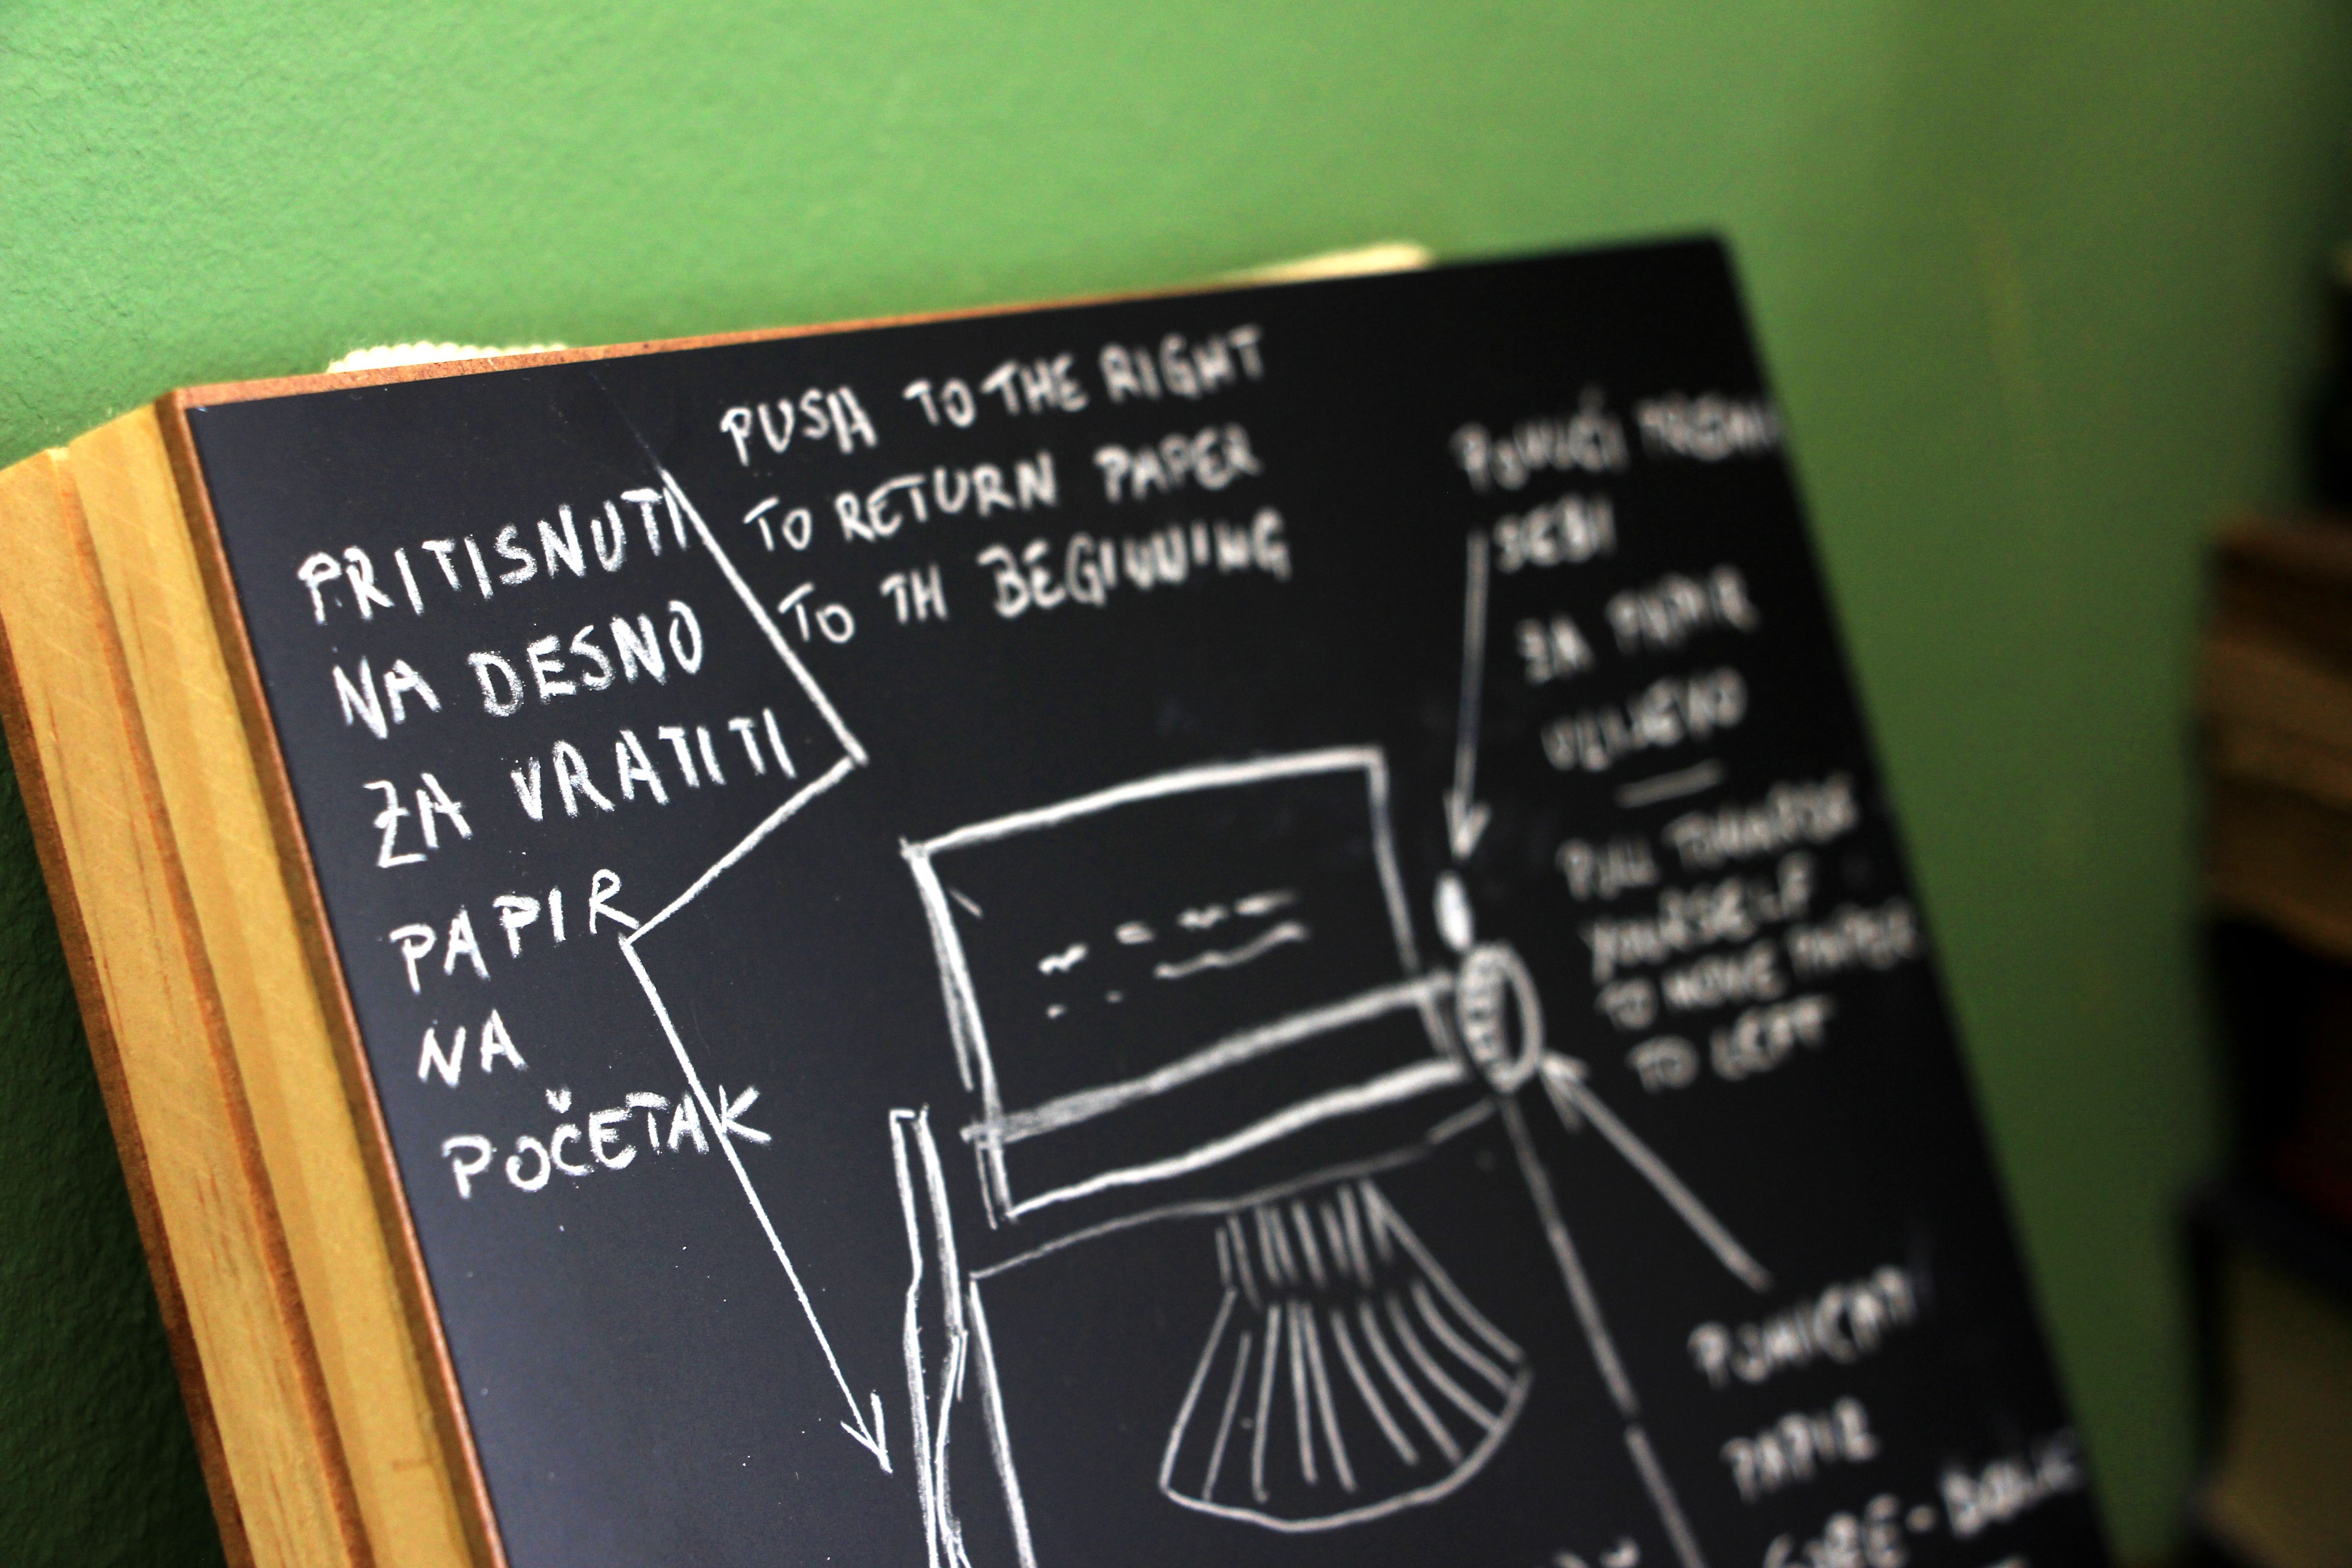 PUSH TO THE RIGHT
TO RETURN PAPER
TO TH BEGINNING
PRITISNUTI
NA DESNO
ZA VRATITI
PAPIR
NA
POČETAK
SEBI
ZA PAPIR
ULIJEVO
PULL TOWARDS
YOURSELF
TO MOVE PAPER
TO LEFT
POMICATI
PAPIR
GORE-DOLJE